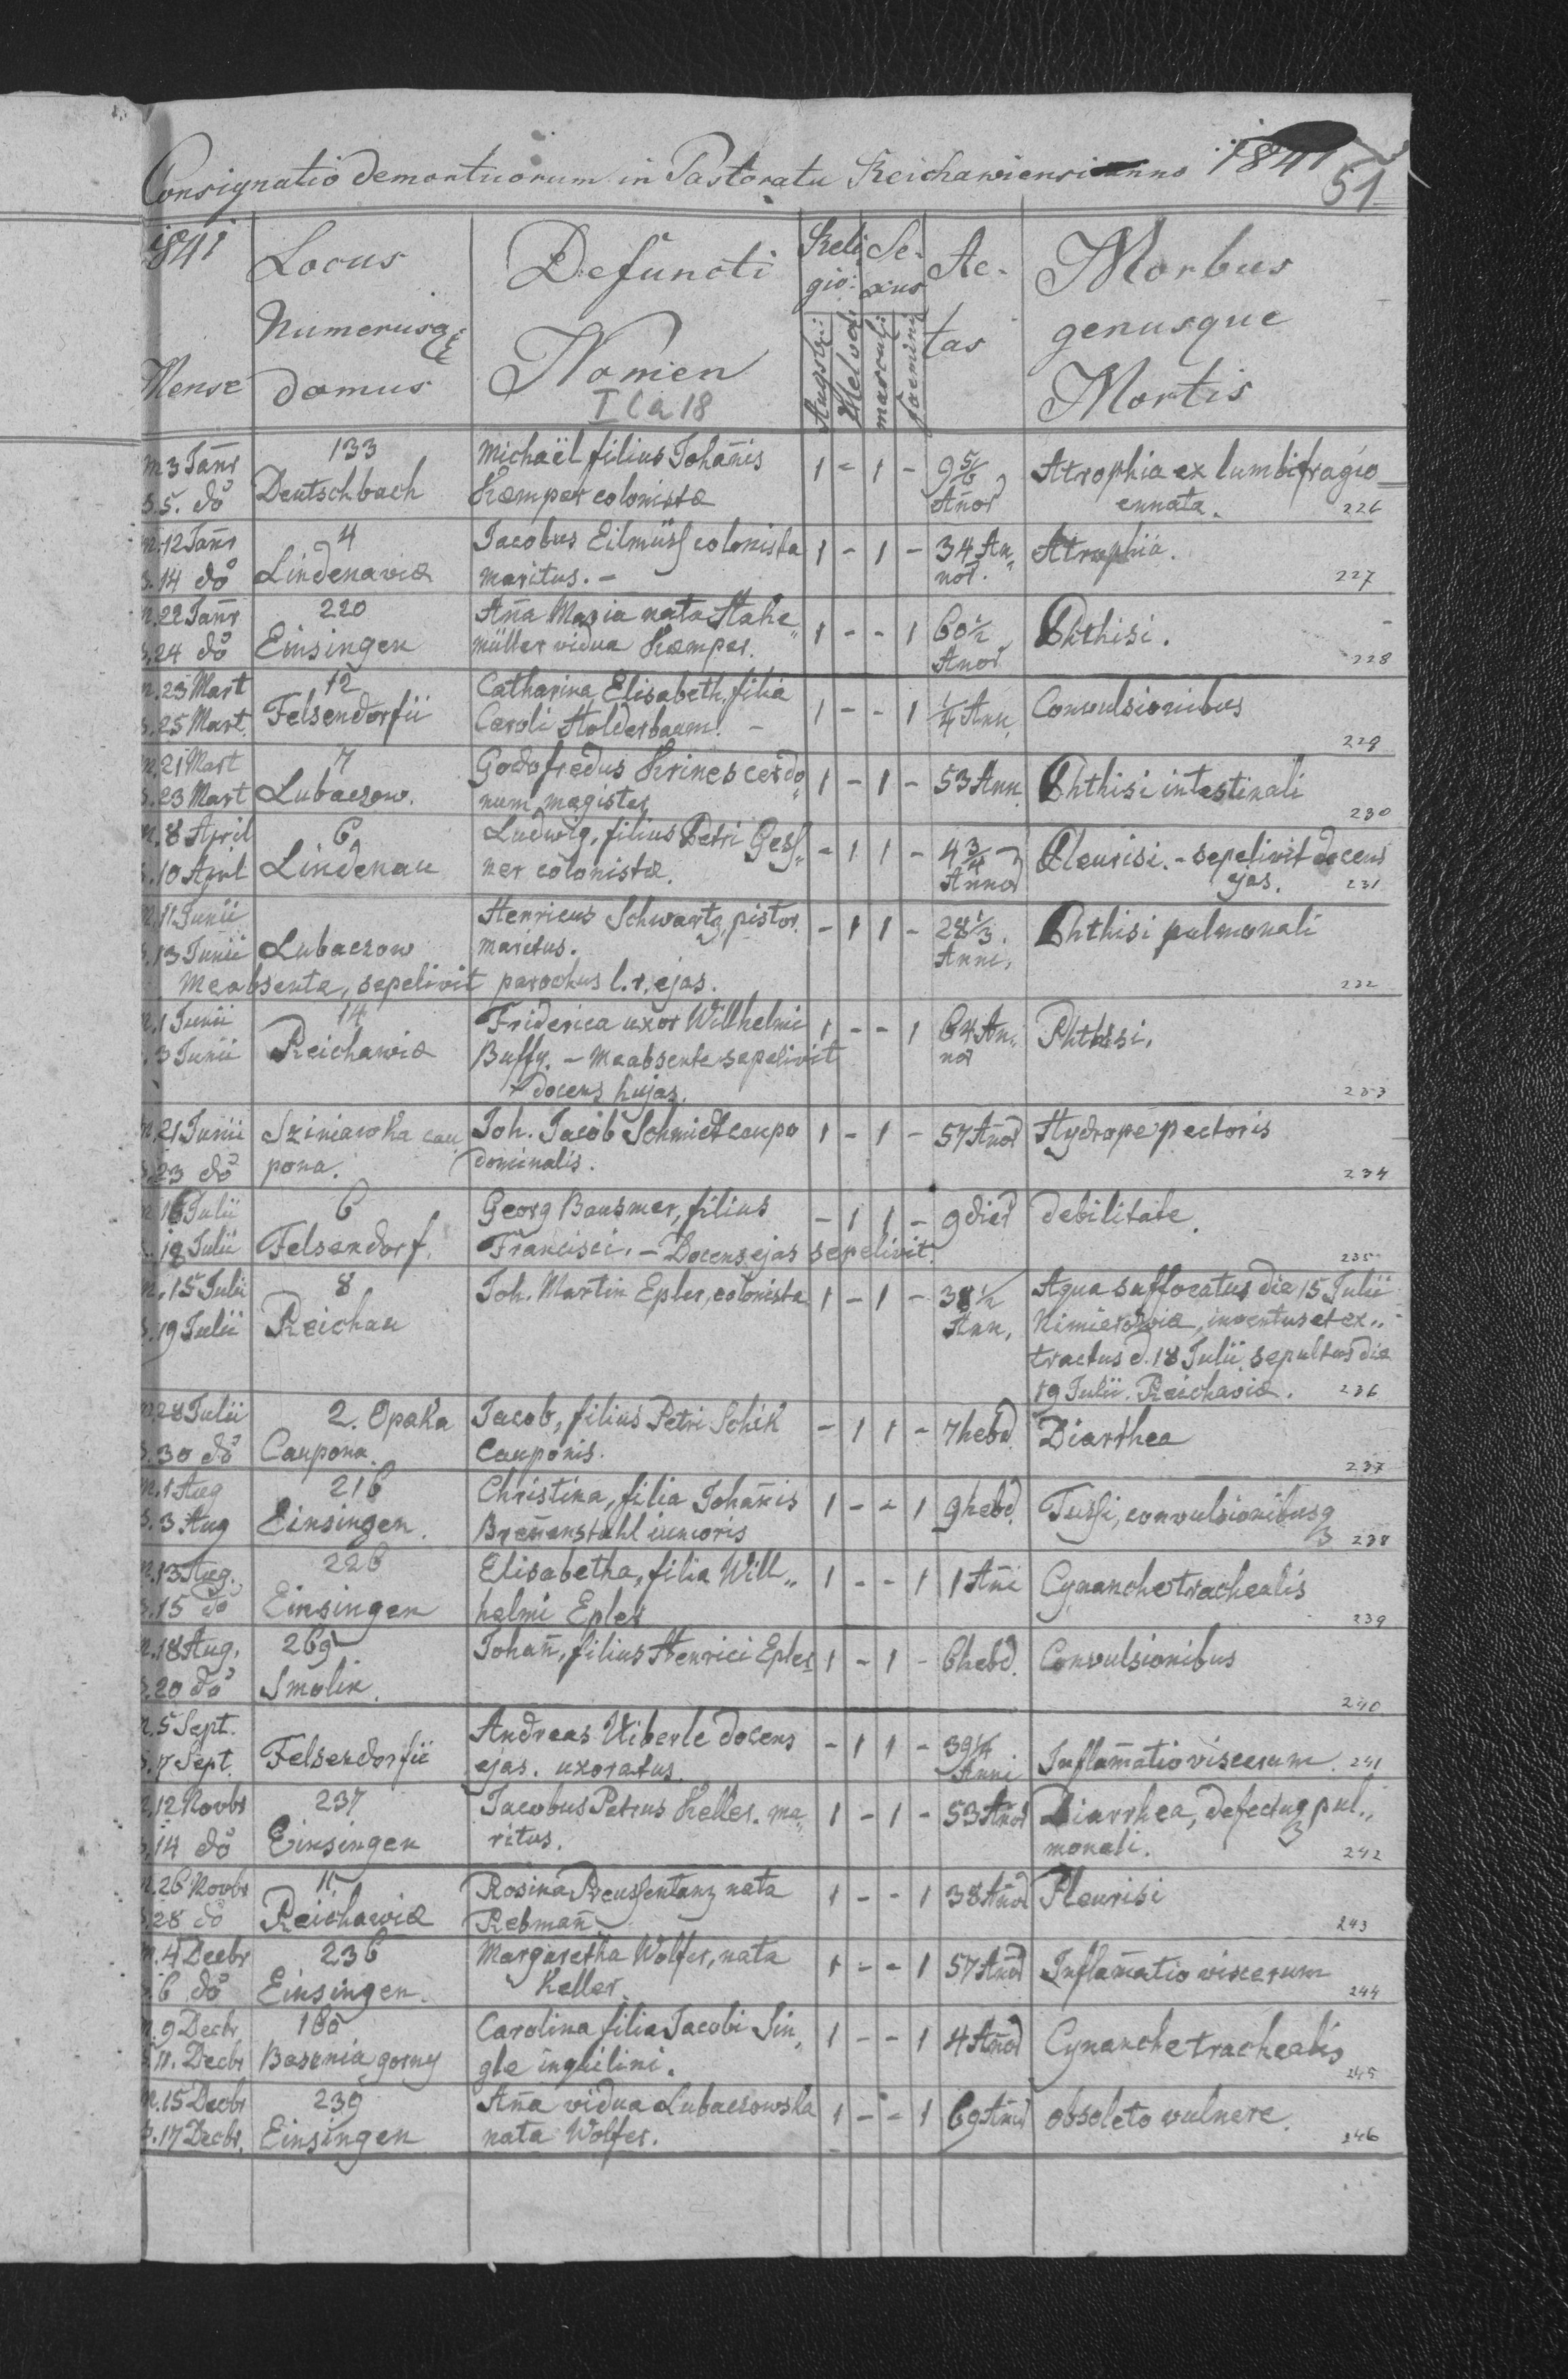 Consignatio demortuorum in Pastoratu Reichawiensi anno 1841
51
1841 Mense
Locus Numerusq domus
Defuncti Nomen
I C a 18
Religio: Augstni Helved
Sexus masculi foemini
Aetas
Morbus genusque Mortis
m 3 Jan̄r 133 Michaël filius Johan̄is 1 - 1 - 9 5/6 Atrophia ex lumbifragio
S. 5. do Deutschbach Kaemper colonistae An̄or ennata. 226
m. 12 Jan̄r 4 Jacobus Eilmüss colonista 1 - 1 - 34 An„ Atrophia.
S. 14 do Lindenaviae maritus. - nor. 227
m. 22 Jan̄r 220 An̄a Maria nata Stahe„ 1 - - 1 60 1/2 Phthisi.
S. 24 do Einsingen müller vidua Kaemper. Anor 228
m. 23 Mart 12 Catharina Elisabeth. filia 1 - - 1 1/4 Ann. Convulsionibus
S. 25 Mart. Felsendorfii Caroli Holderbaum. - 229
m. 21 Mart 7 Godofredus Krines cerdo„ 1 - 1 - 53 Ann. Phthisi intestinali
S. 23 Mart Lubaczow. num magister 230
m. 8 April 6 Ludwig, filius Petri Gess„ - 1 1 - 4 3/4 Pleurisi. - sepelivit docens
S. 10 April Lindenau ner colonistae. Annor ejas. 231
m. 11 Junii Henricus Schwartz, pistor - 1 1 - 28 1/3. Phthisi pulmonali
S. 13 Junii Lubaczow maritus. Anni,
Me absente, sepelivit parochus l. r. ejas. 232
m. 1 Junii 14 Friderica uxor Willhelmi 1 - - 1 64 An„ Phthisi.
S. 3 Junii Reichawiae Buffy. - Me absente sepelivit nor
docens hujas. 233
m. 21 Junii Sziniawka cau Joh. Jacob Schmidt caupo 1 - 1 - 57 An̄or Hydrope pectoris
S. 23 do pona. dominalis. 234
m. 16 Julii 6 Georg Bausmer, filius - 1 1 - 9 dier debilitate.
S. 18 Julii Felsendorf. Francisci. - Docens ejas sepelivit. 235
m. 15 Julii 8 Joh. Martin Epler, colonista 1 - 1 - 38 1/2 Aqua suffocatus die 15 Julii
S. 19 Julii Reichau Ann, Nimieroviae, inventus et ex„
tractus d. 18 Julii, sepultus die
19 Julii. Reichaviae. 236
m. 28 Julii 2. Opaka Jacob, filius Petri Schik - 1 1 - 7 hebd. Diarrhea
S. 30 do Caupona. cauponis. 237
m. 1 Aug 216 Christina, filia Johan̄is 1 - - 1 9 hebd. Tussi, convulsionibusq
S. 3 Aug Einsingen. Bren̄enstahl iunioris 238
m. 13 Aug. 226 Elisabetha, filia Will„ 1 - - 1 1 An̄i Cynanche trachealis
S. 15 do Einsingen helmi Epler 239
m. 18 Aug. 269 Johan̄, filius Henrici Epler 1 - 1 - 6 hebd. Convulsionibus
S. 20 do Smolin. 240
m. 5 Sept. Andreas Uiberle docens - 1 1 - 39 1/4
S. 7 Sept. Felsendorfii ejas. uxoratus. Anni Inflam̄atio viscerum. 241
m. 12 Novbr 237 Jacobus Petrus Keller. ma„ 1 - 1 - 53 An̄or Diarrhea, defectuq pul„
S. 14 do Einsingen ritus. monali. 242
m. 26 Novbr 11 Rosina Preussentanz nata 1 - - 1 38 An̄or Pleurisi
S. 28 do Reichawiae Rebman̄ 243
m. 4 Decbr 236 Margaretha Wolfer, nata 1 - - 1 57 An̄or Inflam̄atio viscerum
S. 6 do Einsingen. Keller. 244
m. 9 Decbr 180 Carolina filia Jacobi Sin„ 1 - - 1 4 An̄or Cynanche trachealis
S. 11. Decbr Basznia gorny gle inquilini. 245
m. 15 Decbr 239 An̄a vidua Lubaczowska 1 - - 1 69 An̄or obsoleto vulnere.
S. 17 Decbr. Einsingen nata Wolfer. 246